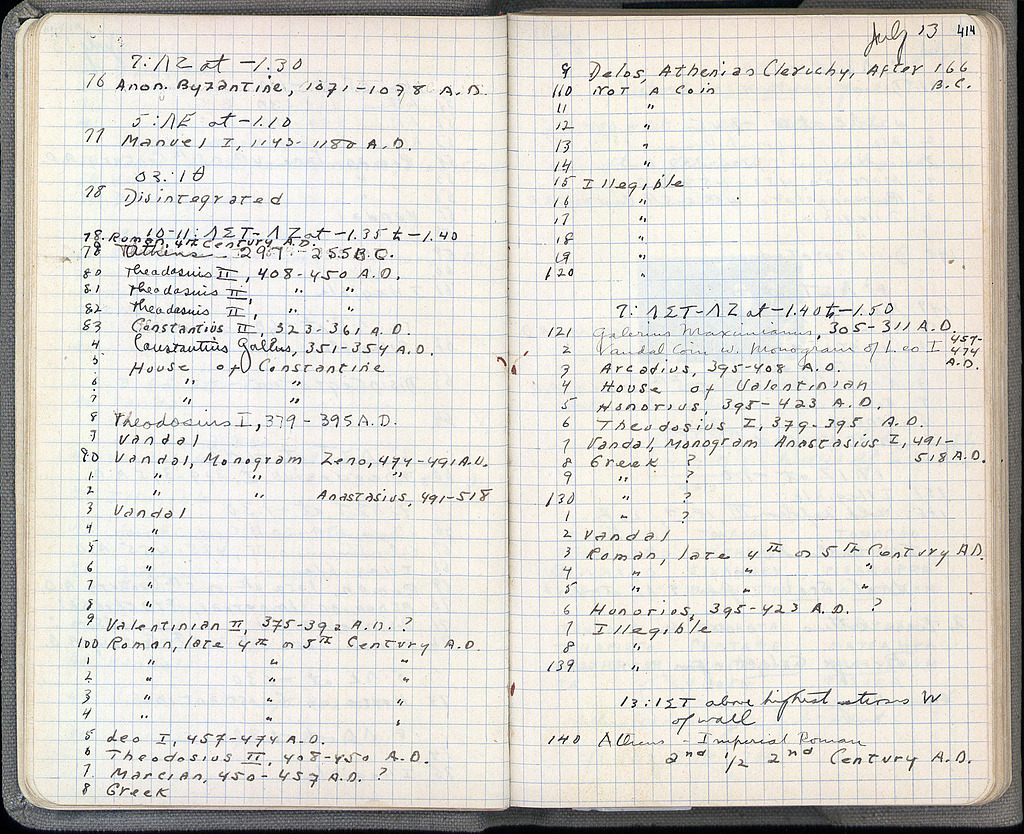 7:ΛΖ at -1.30
76 Anon. Byzantine, 1071-1078 A.D.
5:ΛΕ at -1.10
77 Manuel I, 1143-1180 A.D.
03:1θ
78 Disintegrated
10-11:ΛΣΤ-ΛΖ at -1.35 to -1.40
78. Roman, 4th Century A.D.
Athens 297-255 B.C.
80 Theodosuis II, 408-450 A.D.
81 Theodosuis II, " "
82 Theodosuis II, " "
83 Constantius II, 323-361 A.D.
4 Constantius Gallus, 351-354 A.D.
5 House of Constantine
6 " "
7 " "
8 Theodosius I, 379-395 A.D.
9 Vandal
90 Vandal, Monogram Zeno, 474-491 A.D.
1 " " "
2 " " Anastasius, 491-518
3 Vandal
4 "
5 "
6 "
7 "
8 "
9 Valentinian II, 375-392 A.D. ?
100 Roman, late 4th or 5th Century A.D.
1 " " "
2 " " "
3 " " "
4 " " "
5 Leo I, 457-474 A.D.
6 Theodosius II, 408-450 A.D.
7 Marcian, 450-457 A.D. ?
8 Greek
July 13 414
9 Delos, Athenian Cleruchy, After 166
B.C.
110 Not A Coin
11 "
12 "
13 "
14 "
15 Illegible
16 "
17 "
18 "
19 "
120 "
7:ΛΣΤ-ΛΖ at -1.40 to -1.50
121 Galerius Maximianus, 305-311 A.D.
2 Vandal Coin w. Monogram of Leo I 457-
474
A.D.
3 Arcadius, 395-408 A.D.
4 House of Valentinian
5 Honorius, 395-423 A.D.
6 Theodosius I, 379-395 A.D.
7 Vandal, Monogram Anastasius I, 491-
518 A.D.
8 Greek ?
9 " ?
130 " ?
1 " ?
2 Vandal
3 Roman, late 4th or 5th Century AD.
4 " " "
5 " " "
6 Honorios, 395-423 A.D. ?
7 Illegible
8 "
139 "
13:1ΣΤ above highest W
of wall
140 Athens - Imperial Roman
2nd 1/2 2nd Century A.D.